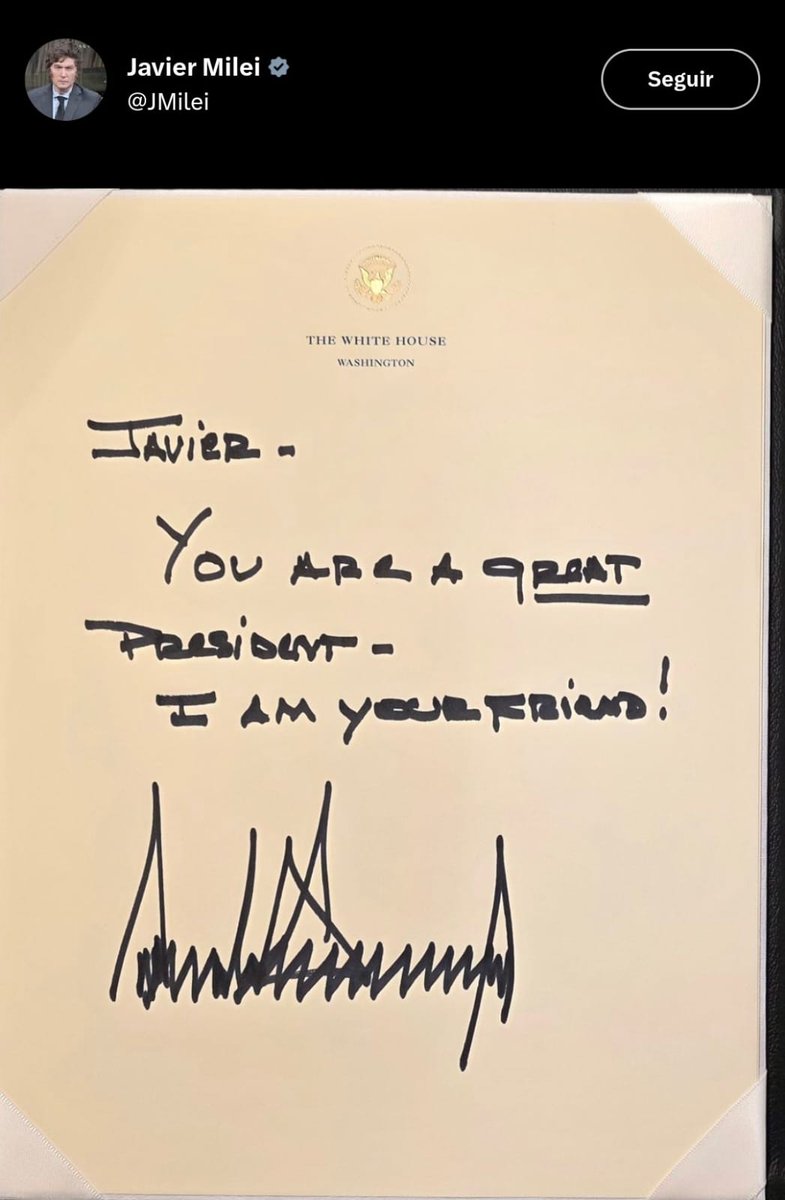 Javier Milei
@JMilei
Seguir
THE WHITE HOUSE
WASHINGTON
JAViER -
YOU ARE A GREAT
PRESiDENT -
I AM YOUR FRiEND!